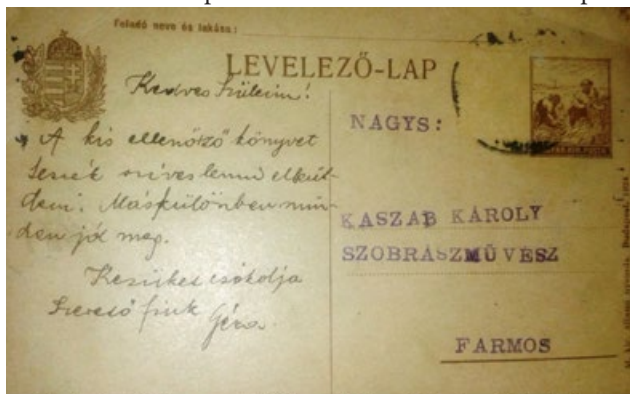 Feladó neve és lakása:
LEVELEZŐ-LAP
Kedves Szüleim!
A kis ellenőrző könyvet
tessék szíves lenni elkül-
deni. Máskülönben min-
den jól meg.
Kezüket csókolja
Szerető fiuk
Géza
NAGYS:
KASZAB KÁROLY
SZOBRÁSZMŰVÉSZ
FARMOS